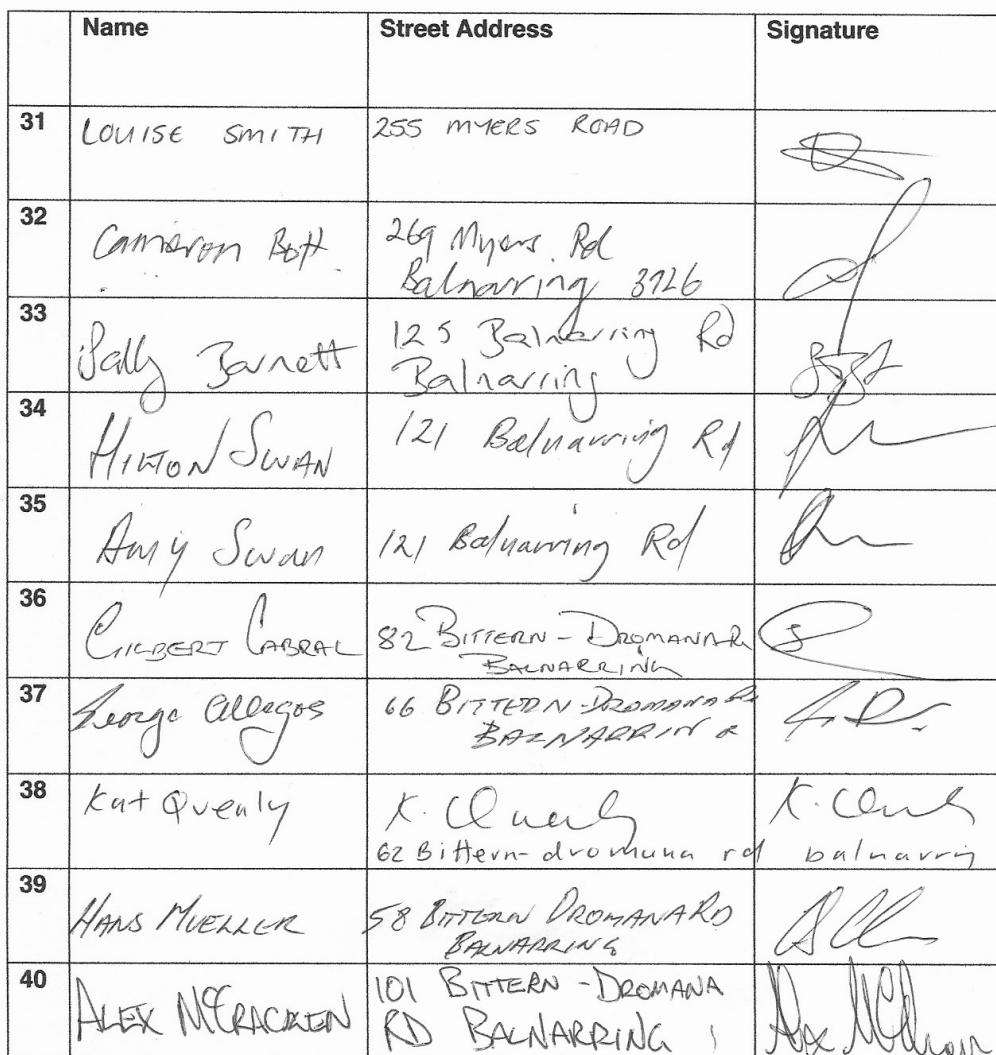 Name Street Address Signature
31 LOUISE SMITH 255 MYERS ROAD
32 Cameron Bott 269 Myers Rd
Balnarring 3926
33 Sally Barnett 125 Balnarring Rd
Balnarring
34 HILTON SWAN 121 Balnarring Rd
35 Amy Swan 121 Balnarring Rd
36 GILBERT CABRAL 82 BITTERN-DROMANA R
BALNARRING
37 George 66 BITTERN-DROMANA Rd
BALNARRING
38 Kat Quealy K. Quealy K. Quealy
62 Bittern-dromana rd balnarrin
39 HANS MUELLER 58 BITTERN DROMANA RD
BALNARRING
40 ALEX MCCRACKEN 101 BITTERN-DROMANA
RD BALNARRING